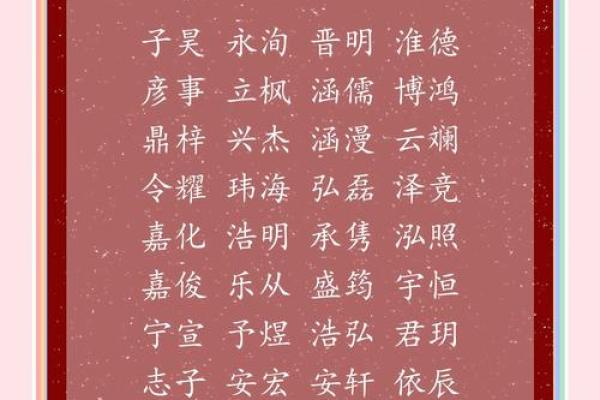 子昊 永洵 晋明 淮德
彦事 立枫 涵儒 博鸿
鼎梓 兴杰 涵漫 云斓
令耀 玮海 弘磊 泽竞
嘉化 浩明 承隽 泓照
嘉俊 乐从 盛筠 宇恒
宁宣 予煜 浩弘 君玥
志子 安宏 安轩 依辰